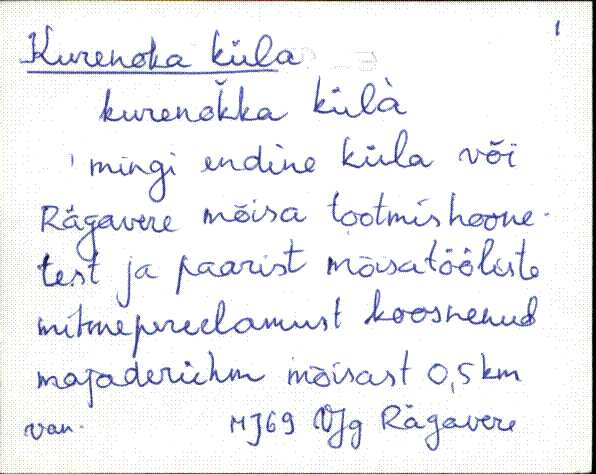 1
Kurenoka küla
kurenokka külà
mingi endine küla või
Rägavere mõisa tootmishoone-
test ja paarist mõisatööliste
mitmepereelamust koosnenud
majaderühm mõisast 0,5 km
van. MJ69 VJg Rägavere